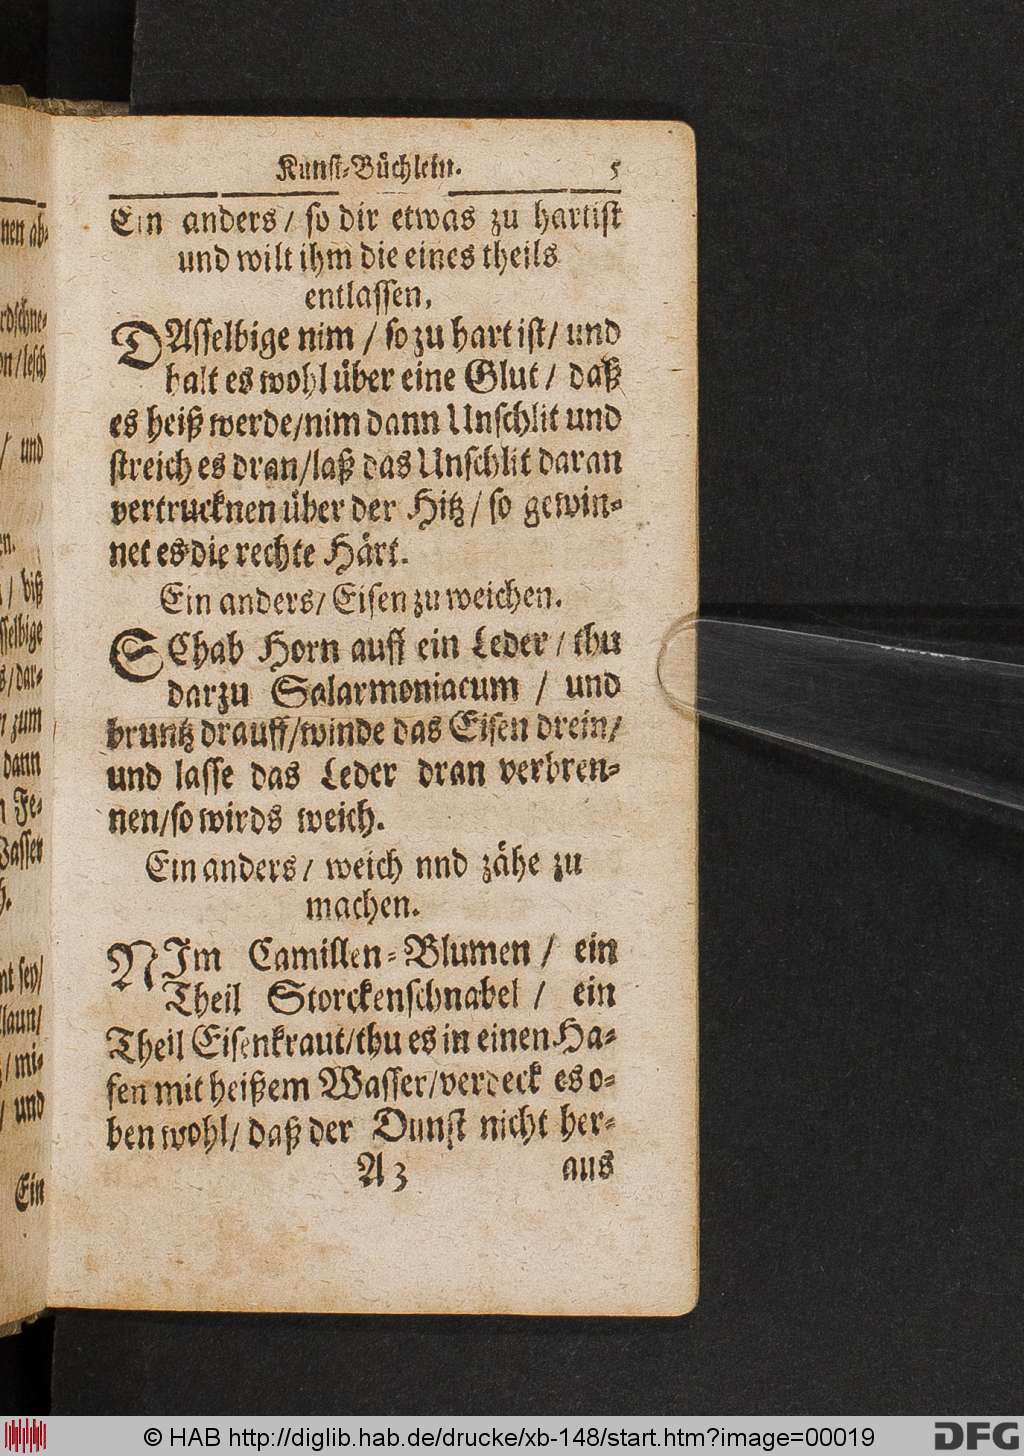 nen ab-
rdschne-
on/lesch
/ und
en.
/ biß
sselbige
s/dar-
n zum
dann
n Fe-
Wasser
h.
nt sey/
llaun/
/mi-
/ und
Ein
Kunst-Büchlein. 5
Ein anders/ so dir etwas zu hart ist
und wilt ihm die eines theils
entlassen.
DAsselbige nim / so zu hart ist/ und
halt es wohl über eine Glut / daß
es heiß werde/nim dann Unschlit und
streich es dran/laß das Unschlit daran
vertrucknen über der Hitz/ so gewin-
net es die rechte Härt.
Ein anders/ Eisen zu weichen.
SChab Horn auff ein Leder / thu
darzu Salarmoniacum / und
bruntz drauff/winde das Eisen drein/
und lasse das Leder dran verbren-
nen/so wirds weich.
Ein anders/ weich nnd zähe zu
machen.
NIm Camillen-Blumen / ein
Theil Storckenschnabel / ein
Theil Eisenkraut/thu es in einen Ha-
fen mit heißem Wasser/verdeck es o-
ben wohl/ daß der Dunst nicht her-
A 3 aus
© HAB http://diglib.hab.de/drucke/xb-148/start.htm?image=00019
DFG